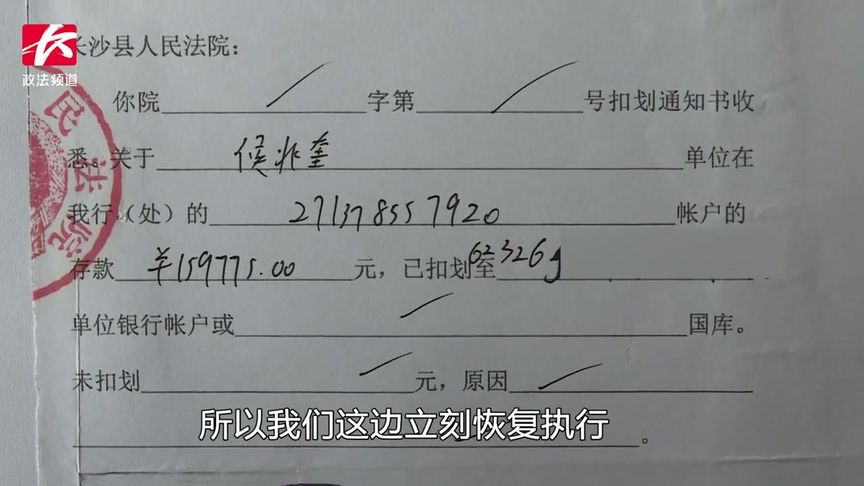 长沙县人民法院：
政法频道
你院 字第 号扣划通知书收
悉。关于 候兆奎 单位在
我行（处）的 271378557920 帐户的
存款 ¥159775.00 元，已扣划至 623269
单位银行帐户或 国库。
未扣划 元，原因
所以我们这边立刻恢复执行
。
民法院